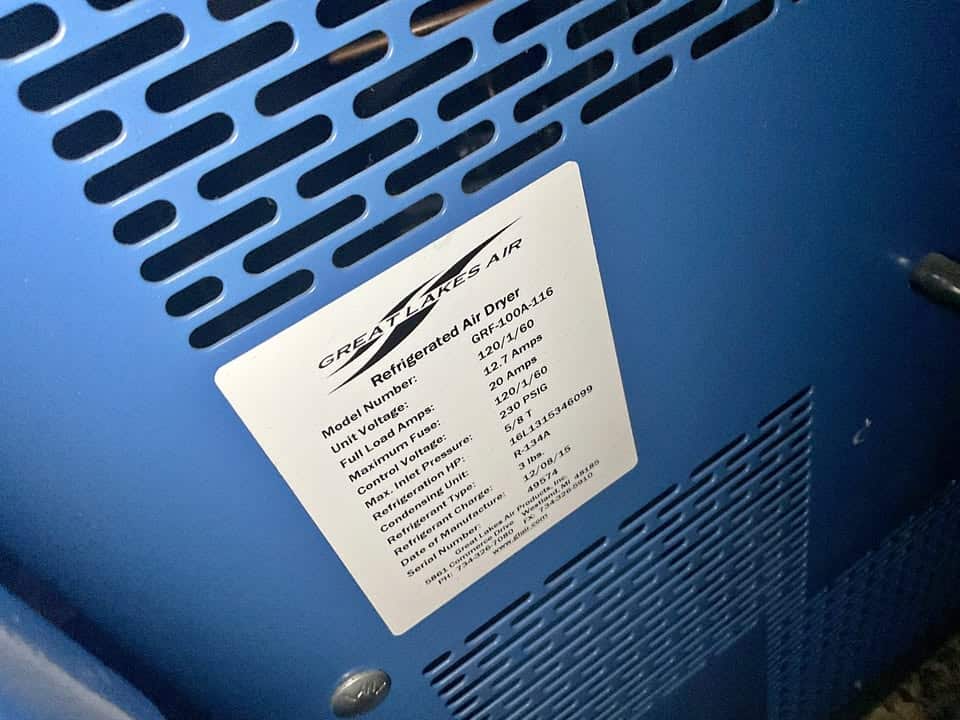 GREAT LAKES AIR
Refrigerated Air Dryer
Model Number: GRF-100A-116
Unit Voltage: 120/1/60
Full Load Amps: 12.7 Amps
Maximum Fuse: 20 Amps
Control Voltage: 120/1/60
Max. Inlet Pressure: 230 PSIG
Refrigeration HP: 5/8 T
Condensing Unit: 16L1315346099
Refrigerant Type: R-134A
Refrigerant Charge: 3 lbs.
Date of Manufacture: 12/08/15
Serial Number: 49574
Great Lakes Air Products, Inc.
5861 Commerce Drive Westland, MI 48185
PH: 734-326-7080 FX: 734-326-5910
www.glair.com